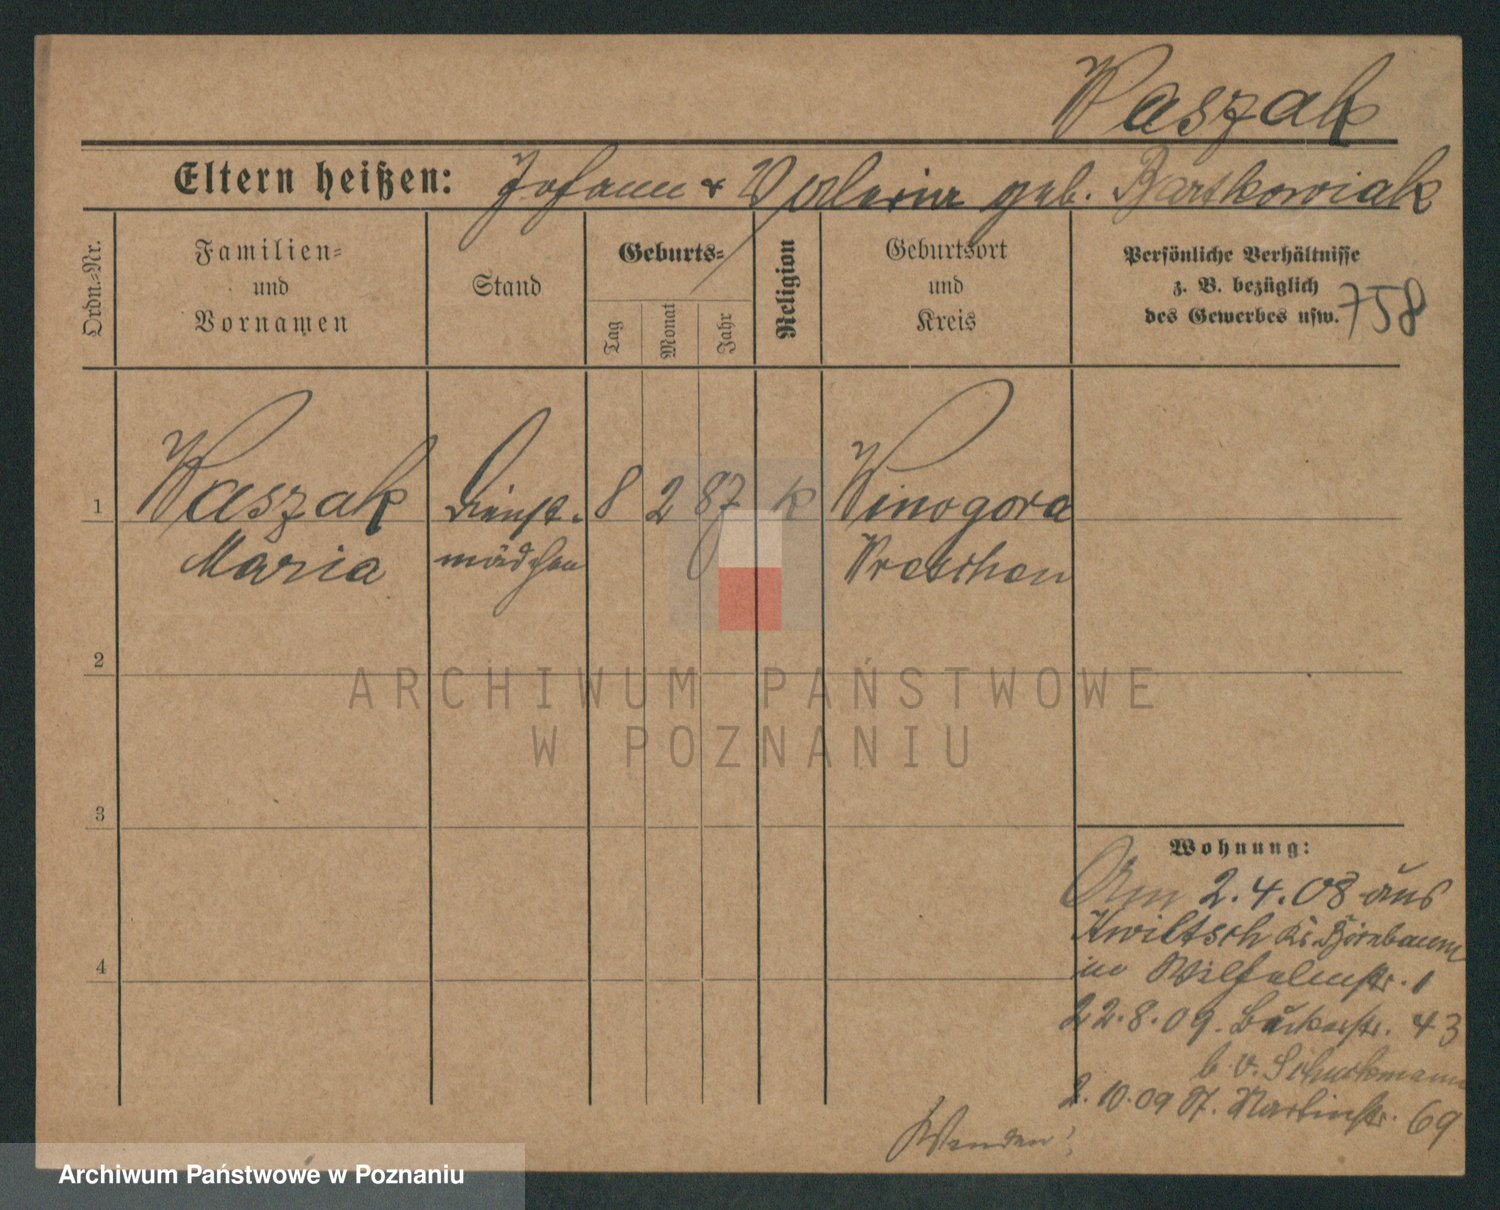 Waszak
Eltern heißen: Johann & Valeria geb. Bartkowiak
Ordn.-Nr.
Familien-
und
Vornamen
Stand
Geburts-
Tag
Monat
Jahr
Religion
Geburtsort
und
Kreis
Persönliche Verhältnisse
z. B. bezüglich
des Gewerbes usw.
758
1 Waszak Dienst- 8 2 87 k Winogora
Maria mädchen Wreschen
2
3
4
ARCHIWUM PAŃSTWOWE
W POZNANIU
Wohnung:
Am 2.4.08 aus
Kwiltsch Kr. Birnbaum
in Wilhelmstr. 1
22.8.09. Bukerstr. 43
b. v. Schuckmann
2.10.09 St. Martinstr. 69
Wenden!
Archiwum Państwowe w Poznaniu